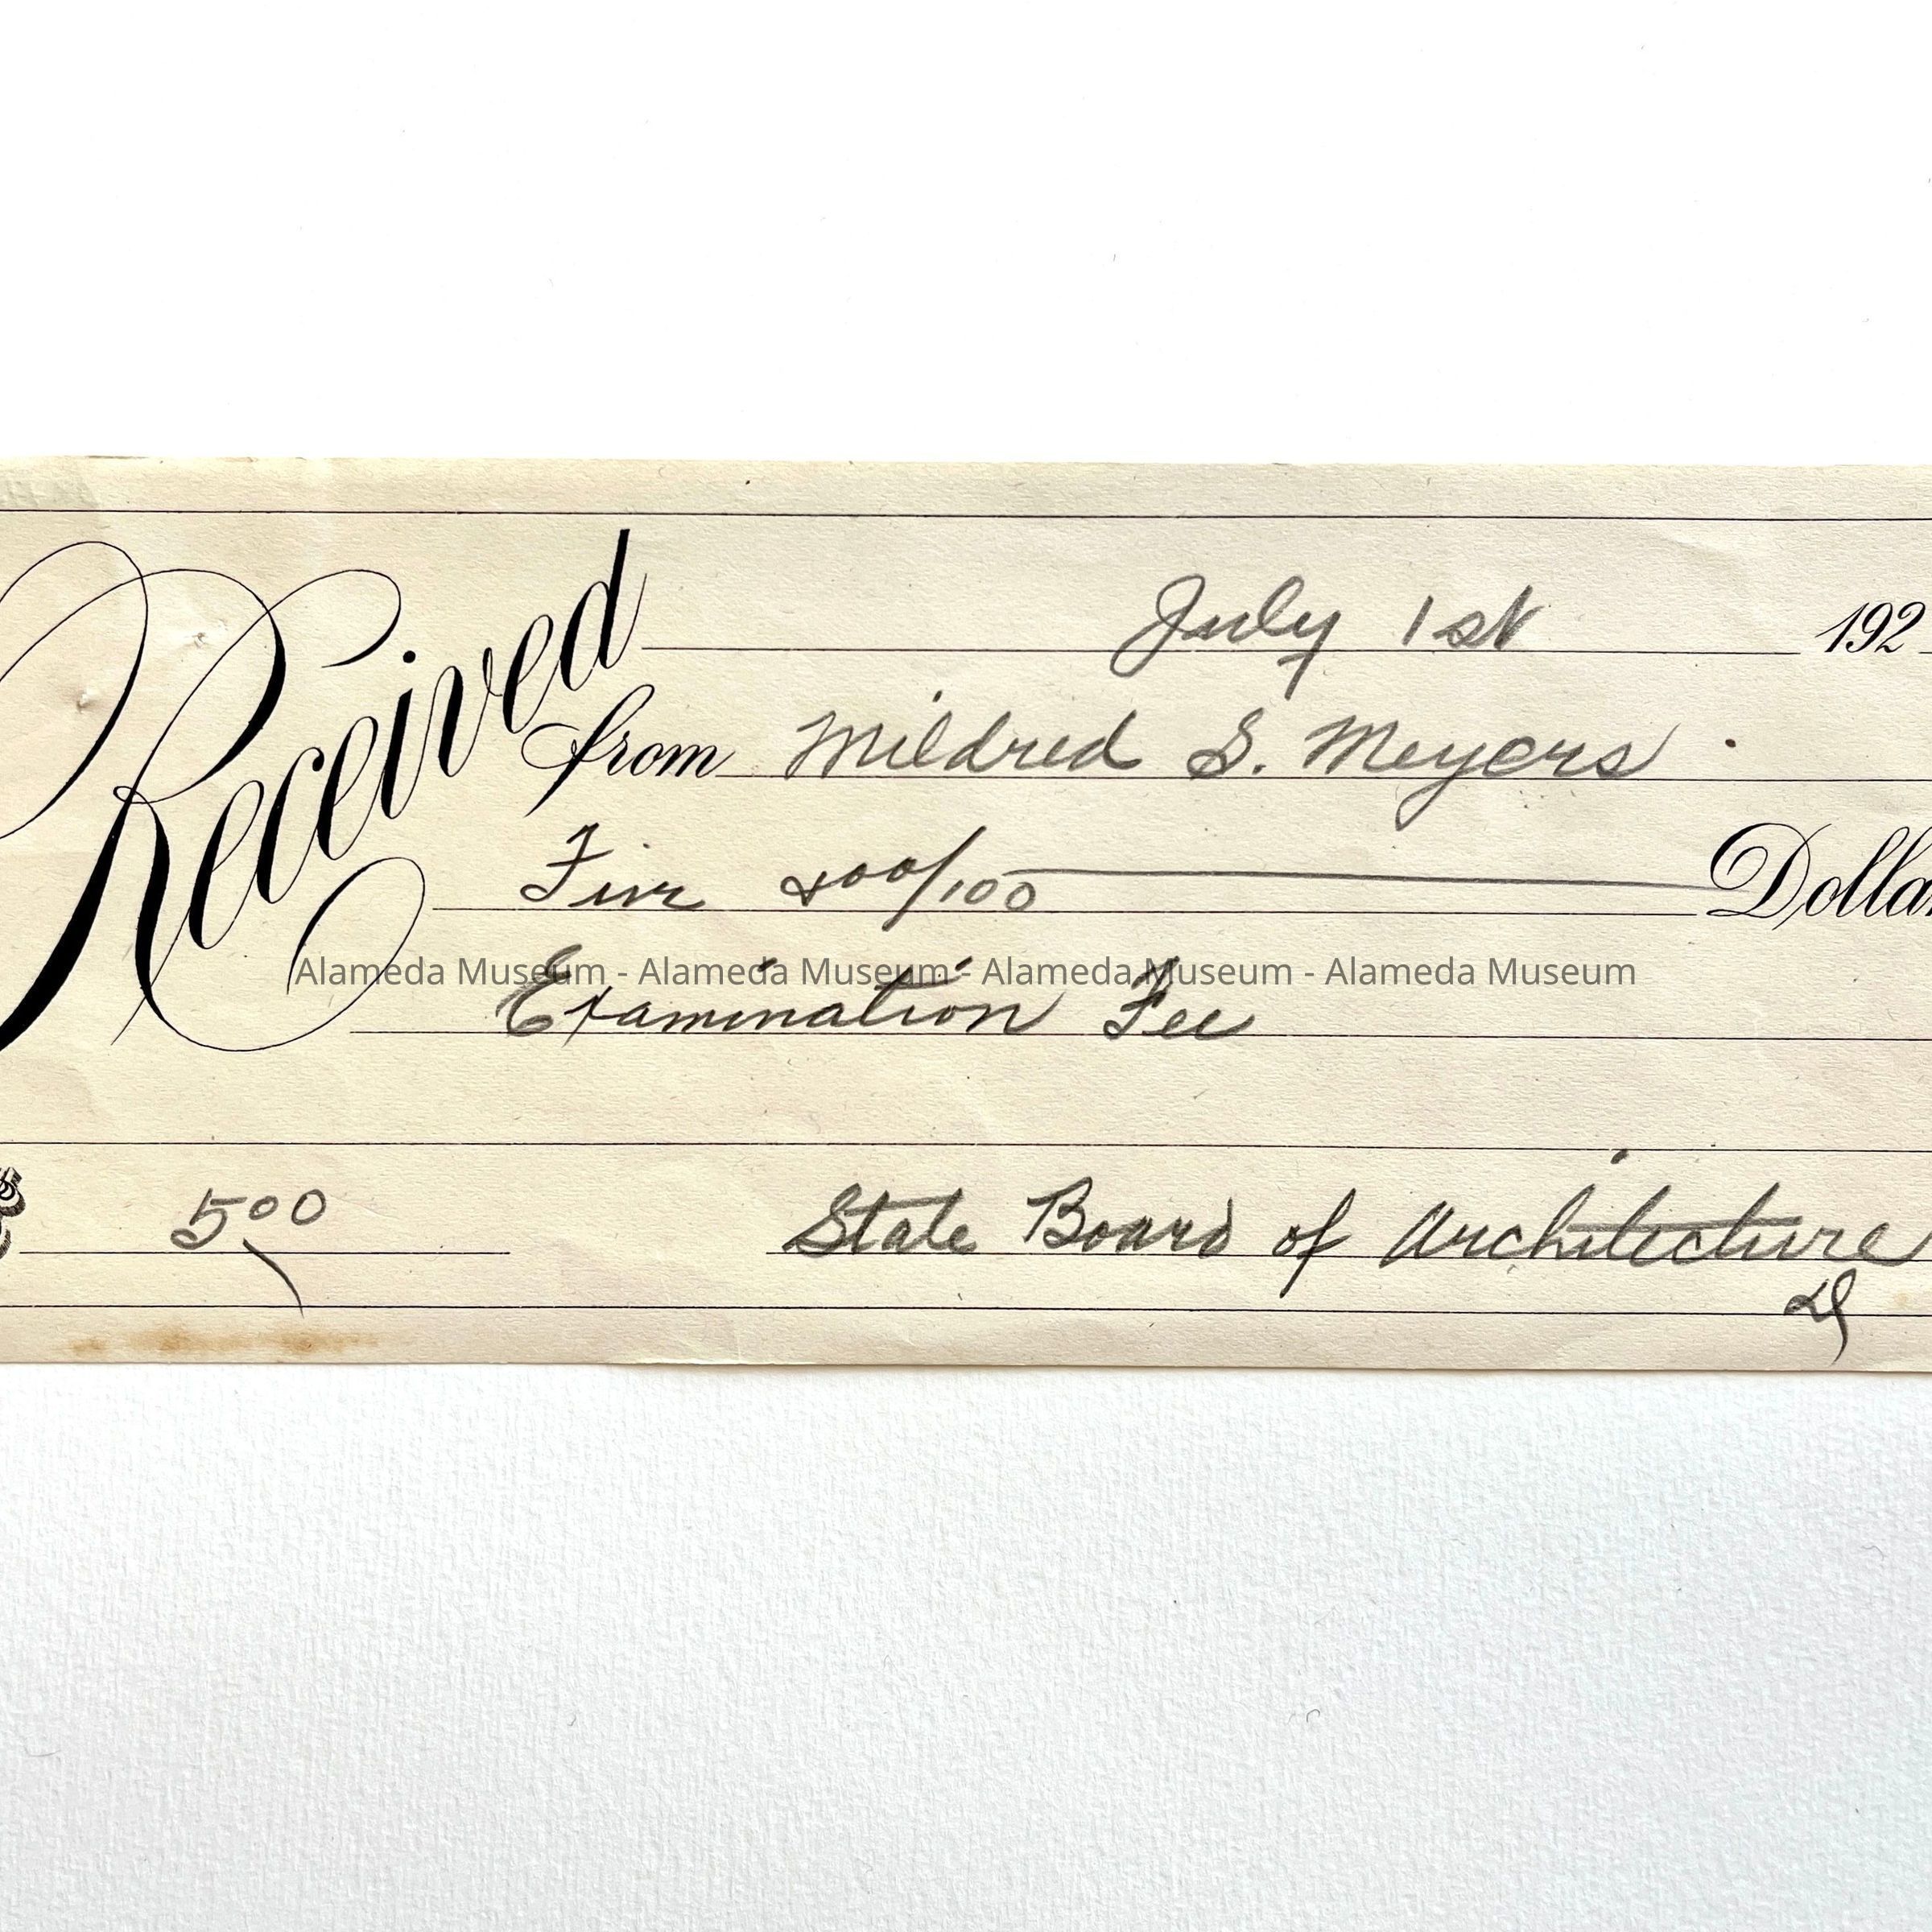 Received July 1st 192
from Mildred S. Meyers
Five & 00/100 Dolla
Alameda Museum - Alameda Museum - Alameda Museum - Alameda Museum
Examination Fee
$ 5.00 State Board of Architecture